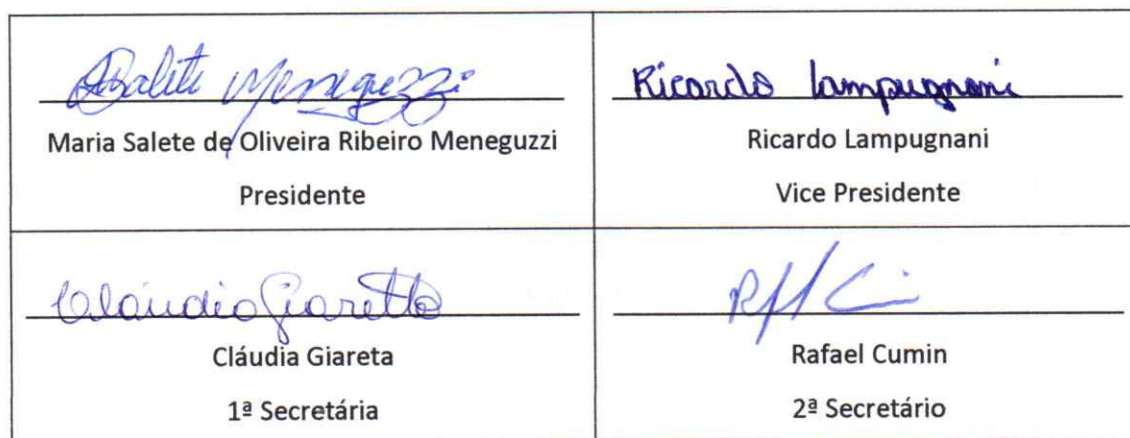 Salete Meneguzzi
Maria Salete de Oliveira Ribeiro Meneguzzi
Presidente
Ricardo Lampugnani
Ricardo Lampugnani
Vice Presidente
Cláudia Giaretta
Cláudia Giareta
1ª Secretária
Rafael Cumin
2ª Secretário